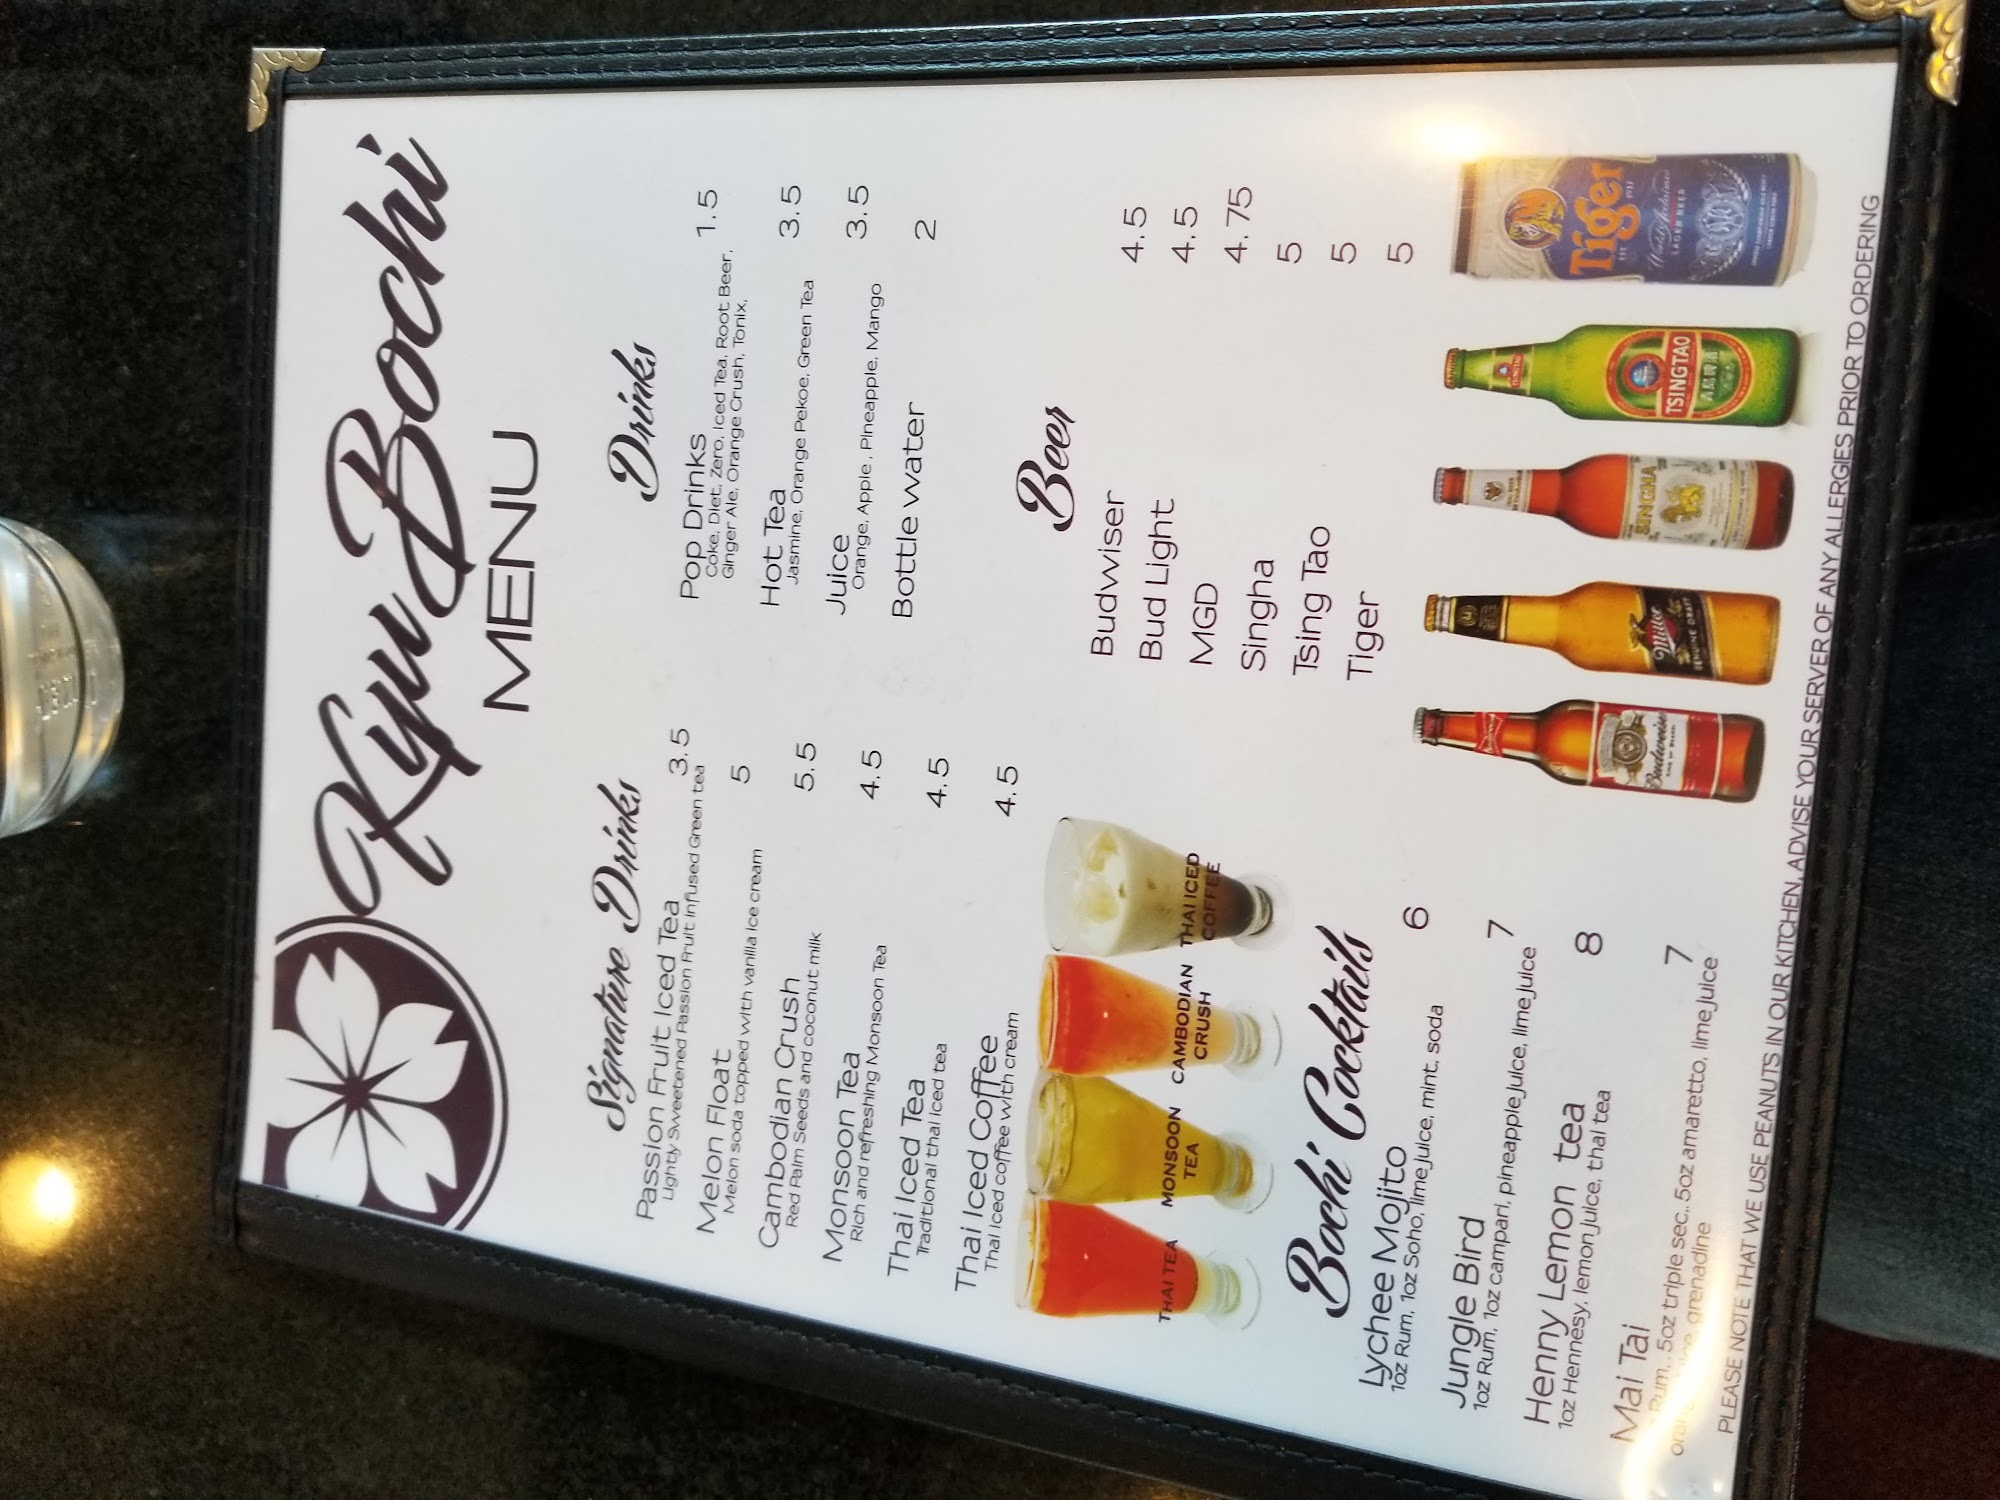 Kyu Bochi
MENU
Signature Drinks
Passion Fruit Iced Tea 3.5
Lightly Sweetened Passion Fruit Infused Green tea
Melon Float 5
Melon soda topped with vanilla ice cream
Cambodian Crush 5.5
Red Palm Seeds and coconut milk
Monsoon Tea 4.5
Rich and refreshing Monsoon Tea
Thai Iced Tea 4.5
Traditional thai Iced tea
Thai Iced Coffee 4.5
Thai Iced coffee with cream
THAI TEA
MONSOON
TEA
CAMBODIAN
CRUSH
THAI ICED
COFFEE
Bochi Cocktails
Lychee Mojito 6
1oz Rum, 1oz Soho, lime juice, mint, soda
Jungle Bird 7
1oz Rum, 1oz campari, pineapple juice, lime juice
Henny Lemon tea 8
1oz Hennesy, lemon juice, thai tea
Mai Tai 7
Rum, .5oz triple sec, .5oz amaretto, lime juice
grenadine
Drinks
Pop Drinks 1.5
Coke, Diet, Zero, Iced Tea, Root Beer,
Ginger Ale, Orange Crush, Tonix,
Hot Tea 3.5
Jasmine, Orange Pekoe, Green Tea
Juice 3.5
Orange, Apple , Pineapple, Mango
Bottle water 2
Beer
Budwiser 4.5
Bud Light 4.5
MGD 4.75
Singha 5
Tsing Tao 5
Tiger 5
Budweiser
Miller
GENUINE DRAFT
SINGHA
TSINGTAO
Tiger
LAGER BEER
PLEASE NOTE THAT WE USE PEANUTS IN OUR KITCHEN, ADVISE YOUR SERVER OF ANY ALLERGES PRIOR TO ORDERING